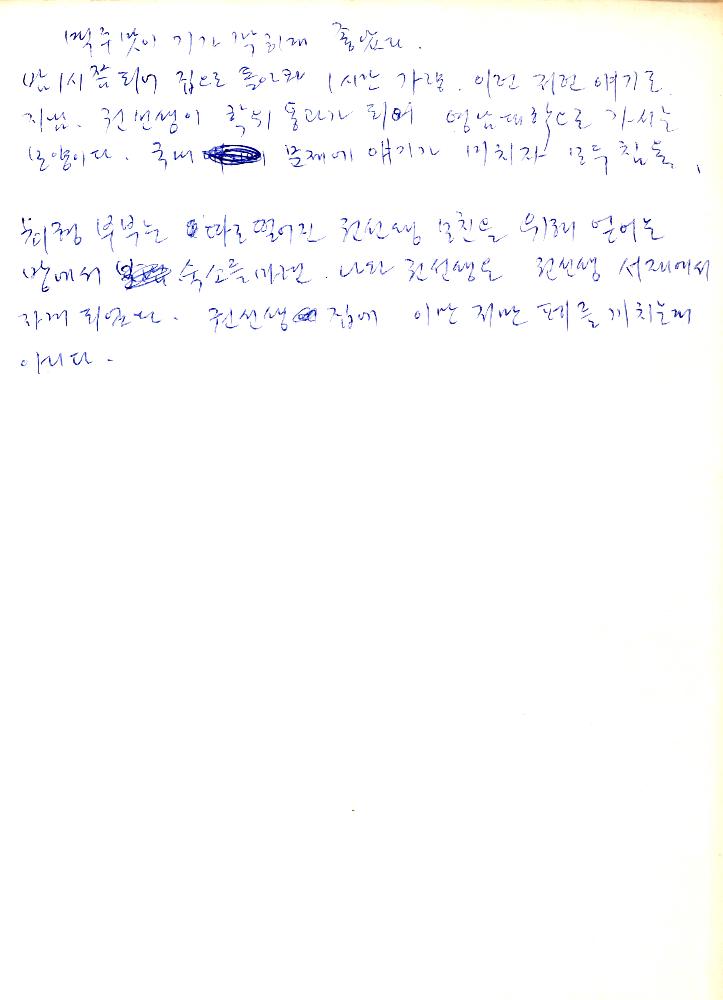 맥주맛이 기가 막히게 좋았다.
밤 1시쯤 되어 집으로 돌아와 1시간 가량. 이런 저런 얘기로
지냄. 권선생이 학위 통과가 되어 영남대학으로 가시는
모양이다. 국내 문제에 얘기가 미치자 모두 침통.
부부는 따로 떨어진 권선생 모친을 위해 얻어논
방에서 숙소를 마련. 나와 권선생은 권선생 서재에서
자게 되었다. 권선생 집에 이만 저만 폐를 끼치는게
아니다.